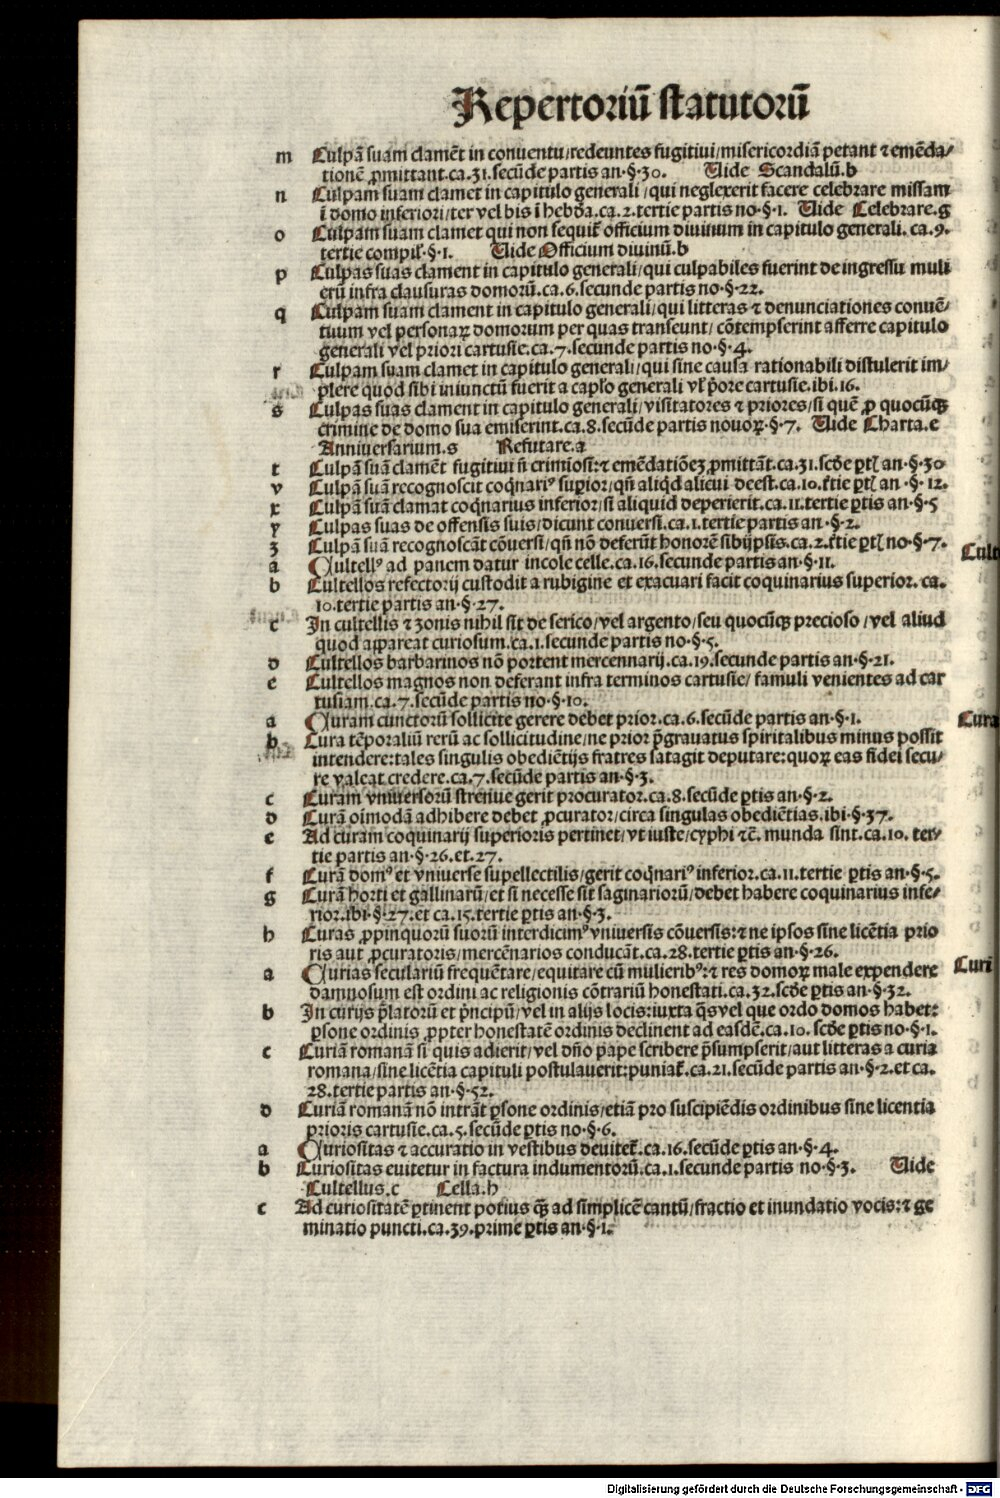 Repertoriū statutorū
m Culpā suam clamēt in conuentu/redeuntes fugitiui/misericordiā petant ⁊ emēda/
tionē ꝓmittant.ca.31.secūde partis an·§·30. Uide Scandalū.b
n Culpam suam clamet in capitulo generali /qui neglexerit facere celebrare missam
ī domo inferiori/ter vel bis ī hebđa.ca.2.tertie partis no·§·1. Uide Celebrare.g
o Culpam suam clamet qui non sequit̄ officium diuinum in capitulo generali. ca.9.
tertie compil̄·§·1. Uide Officium diuinū.b
p Culpas suas clament in capitulo generali/qui culpabiles fuerint de ingressu muli
erū infra clausuras domorū.ca.6.secunde partis no·§·22.
q Culpam suam clament in capitulo generali/qui litteras ⁊ denunciationes conuē/
tuum vel personaꝝ domorum per quas transeunt/ cōtempserint afferre capitulo
generali vel priori cartusie.ca.7.secunde partis no·§·4.
r Culpam suam clamet in capitulo generali/qui sine causa rationabili distulerit im/
plere quod sibi iniunctū fuerit a caplo generali vl̄ p̄ore cartusie.ibi.16.
s Culpas suas clament in capitulo generali/visitatores ⁊ priores/si quē ꝓ quocūqꝫ
crimine de domo sua emiserint.ca.8.secūde partis nouoꝝ·§·7. Uide Charta.e
Anniuersarium.s Refutare.a
t Culpā suā clamēt fugitiui n̄ crimiosi:⁊ emēdatiōeꝫ ꝓmittāt.ca.31.scđe ꝑtꝭ an·§·30
v Culpā suā recognoscit coq̄nariꝰ suꝑior/qn̄ aliqd alicui deest.ca.10.t̄tie ꝑtꝭ an ·§· 12.
x Culpā suā clamat coq̄narius inferior/si aliquid deperierit.ca.11.tertie ꝑtis an·§·5
y Culpas suas de offensis suis/dicunt conuersi.ca.1.tertie partis an ·§·2.
ꝫ Culpā suā recognoscāt cōuersi/qn̄ nō deferūt honorē sibijpsis.ca.2.t̄tie ꝑtꝭ no·§·7.
a Cultellꝰ ad panem datur incole celle.ca.16.secunde partis an·§·11. Cult
b Cultellos refectorij custodit a rubigine et exacuari facit coquinarius superior. ca.
10.tertie partis an·§·27.
c In cultellis ⁊ zonis nihil sit de serico/vel argento/seu quocūqꝫ precioso /vel aliud
quod appareat curiosum.ca.1.secunde partis no·§·5.
d Cultellos barbarinos nō portent mercennarij.ca.19.secunde partis an·§·21.
e Cultellos magnos non deferant infra terminos cartusie/ famuli venientes ad car
tusiam.ca.7.secūde partis no·§·10.
a Curam cunctorū sollicite gerere debet prior.ca.6.secūde partis an·§·1. Cura
b Cura tēporaliū rerū ac sollicitudine/ne prior p̄grauatus spiritalibus minus possit
intendere:tales singulis obediētijs fratres satagit deputare:quoꝝ eas fidei secu/
re valeat credere.ca.7.secūde partis an·§·3.
c Curam vniuersorū strenue gerit procurator.ca.8.secūde ꝑtis an·§·2.
d Curā oimodā adhibere debet ꝓcurator/circa singulas obediētias.ibi·§·37.
e Ad curam coquinarij superioris pertinet/vt iuste/cyphi ⁊c̄. munda sint.ca.10. ter/
tie partis an·§·26.et.27.
f Curā domꝰ et vniuerse supellectilis/gerit coq̄nariꝰ inferior.ca.11.tertie ꝑtis an·§·5.
g Curā horti et gallinarū/et si necesse sit saginariorū/debet habere coquinarius infe/
rior.ibi·§·27.et ca.15.tertie ꝑtis an·§·3.
h Curas ꝓpinquorū suorū interdicimꝰ vniuersis cōuersis:⁊ ne ipsos sine licētia prio
ris aut ꝓcuratoris/mercēnarios conducāt.ca.28.tertie ꝑtis an·§·26.
a Curias seculariū frequētare/equitare cū mulieribꝰ:⁊ res domoꝝ male expendere Curi
damnosum est ordini ac religionis cōtrariū honestati.ca.32.scđe ꝑtis an·§·32.
b In curijs p̄latorū et p̄ncipū/vel in alijs locis:iuxta q̄s vel que ordo domos habet:
ꝑsone ordinis ꝓpter honestatē ordinis declinent ad easdē.ca.10. scđe ꝑtis no·§·1.
c Curiā romanā si quis adierit/vel dn̄o pape scribere p̄sumpserit/aut litteras a curia
romana/sine licētia capituli postulauerit:puniat̄.ca.21.secūde partis an·§·2.et ca.
28.tertie partis an·§·52.
d Curiā romanā nō intrāt ꝑsone ordinis/etiā pro suscipiēdis ordinibus sine licentia
prioris cartusie.ca.5.secūde ꝑtis no·§·6.
a Curiositas ⁊ accuratio in vestibus deuitet̄.ca.16.secūde ꝑtis an·§·4.
b Curiositas euitetur in factura indumentorū.ca.1.secunde partis no·§·3. Uide
Cultellus.c Cella.h
c Ad curiositatē ꝑtinent potius q̄ꝫ ad simplicē cantū/fractio et inundatio vocis:⁊ ge
minatio puncti.ca.39.prime ꝑtis an·§·1.
Digitalisierung gefördert durch die Deutsche Forschungsgemeinschaft - DFG